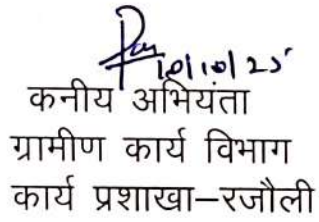 10/10/25
कनीय अभियंता
ग्रामीण कार्य विभाग
कार्य प्रशाखा–रजौली